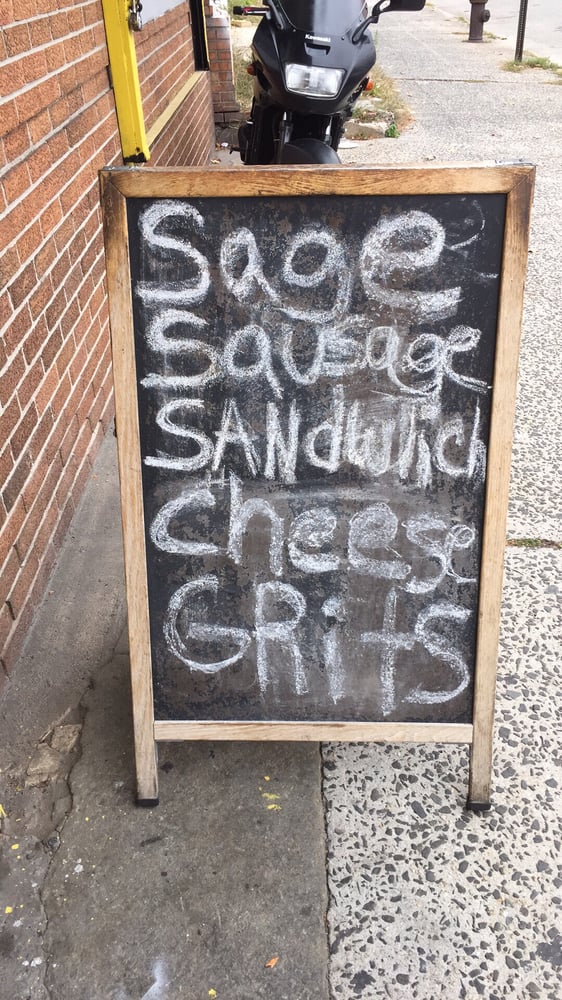 Kawasaki
Sage
Sausage
SANdwich
Cheese
GRits